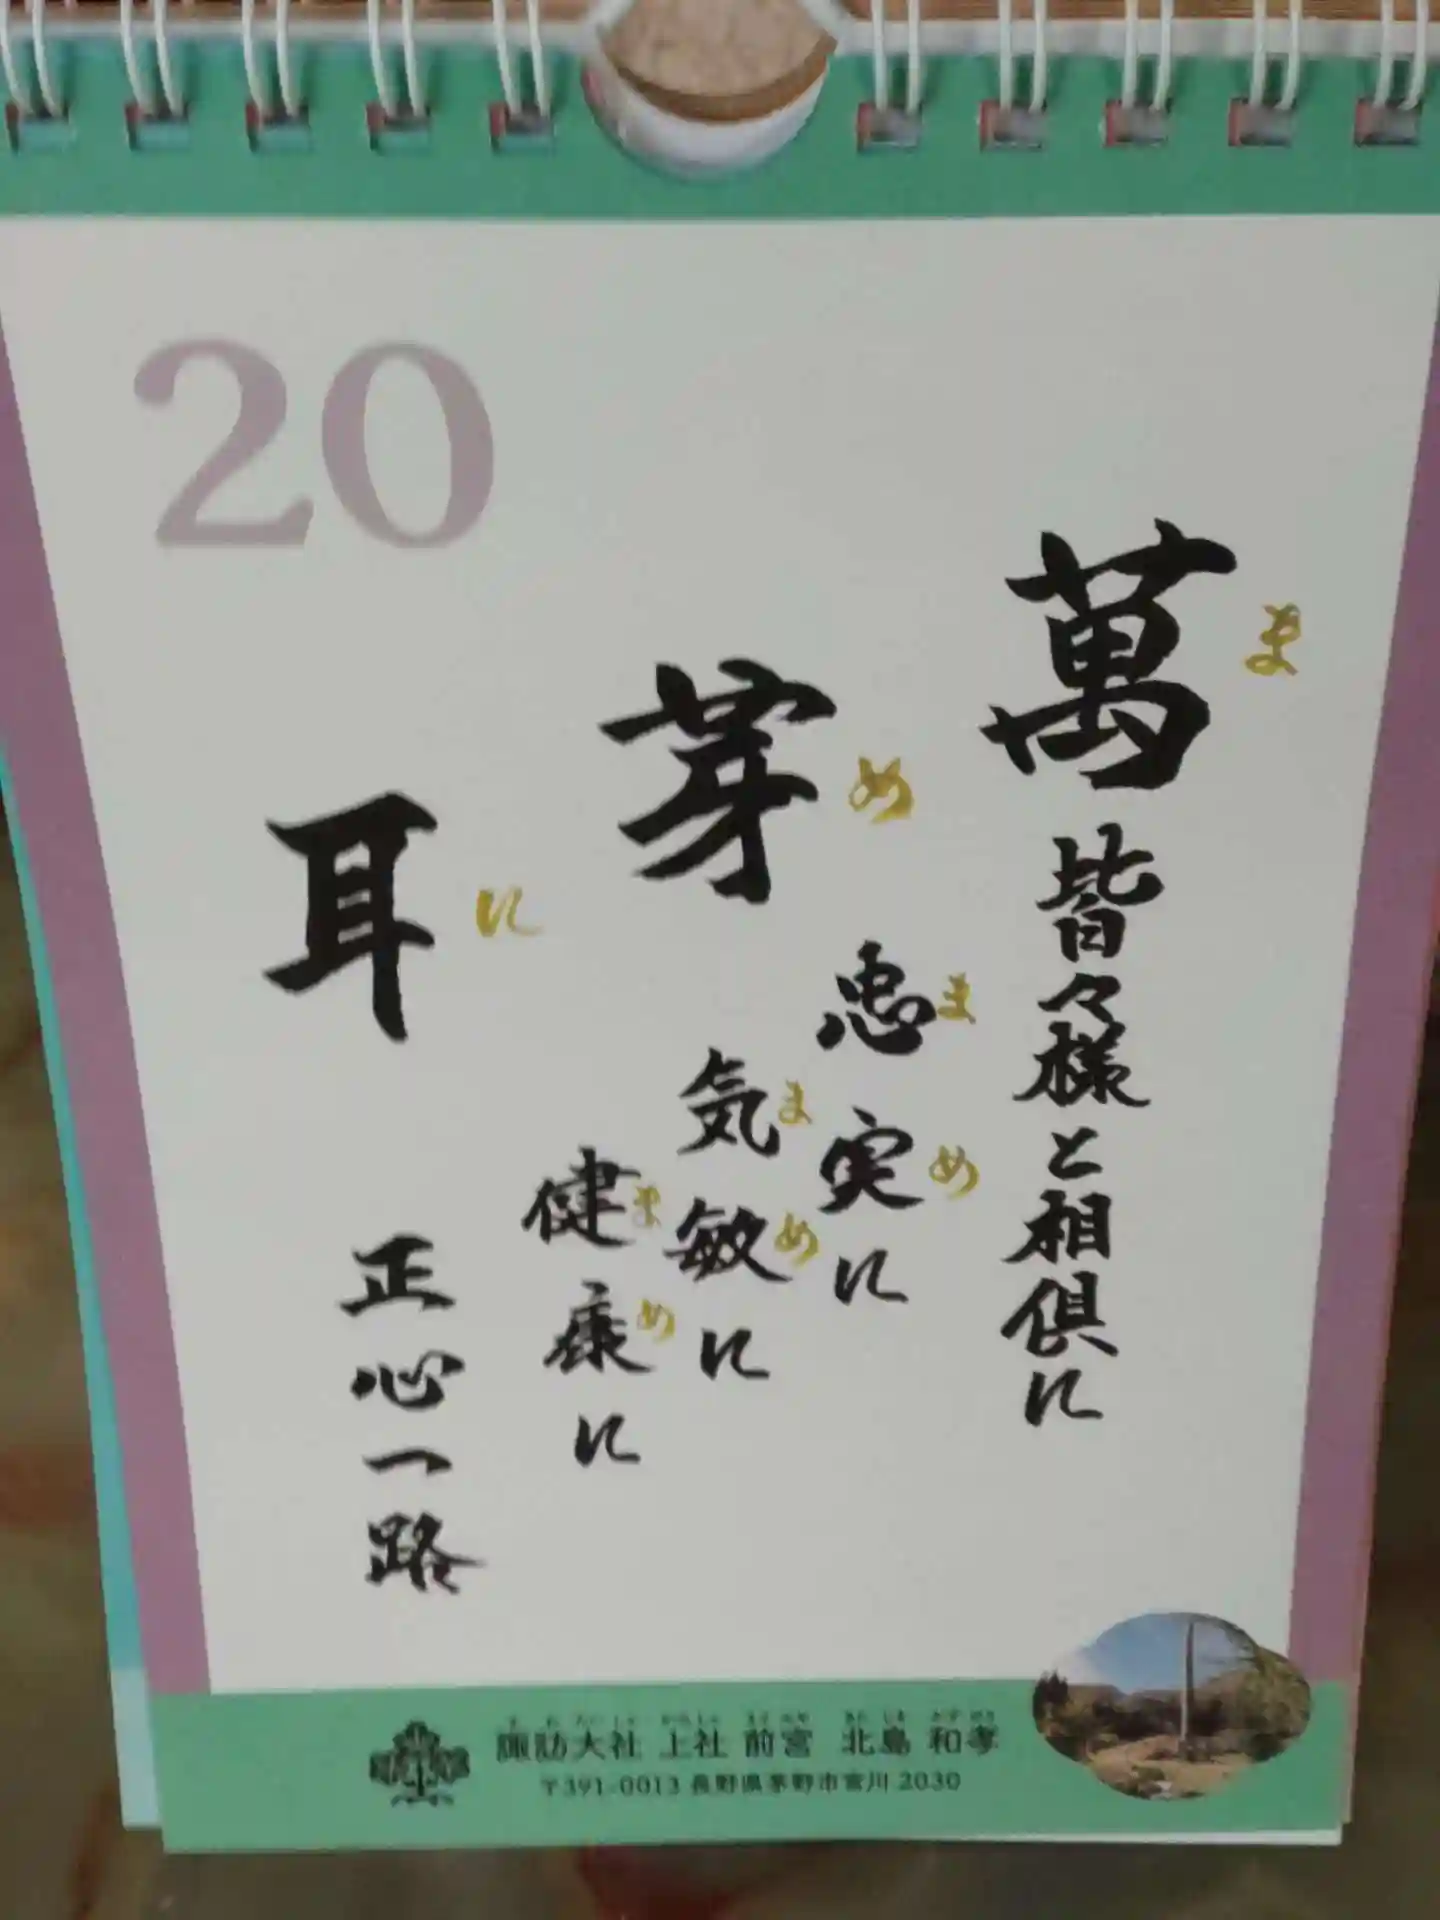 20
萬
ま
皆々様と相倶に
芽
め
忠実に
ま
め
気敏に
ま
め
健康に
ま
め
耳
に
正心一路
諏訪大社 上社 前宮 北島 和孝
〒391-0013 長野県茅野市宮川 2030